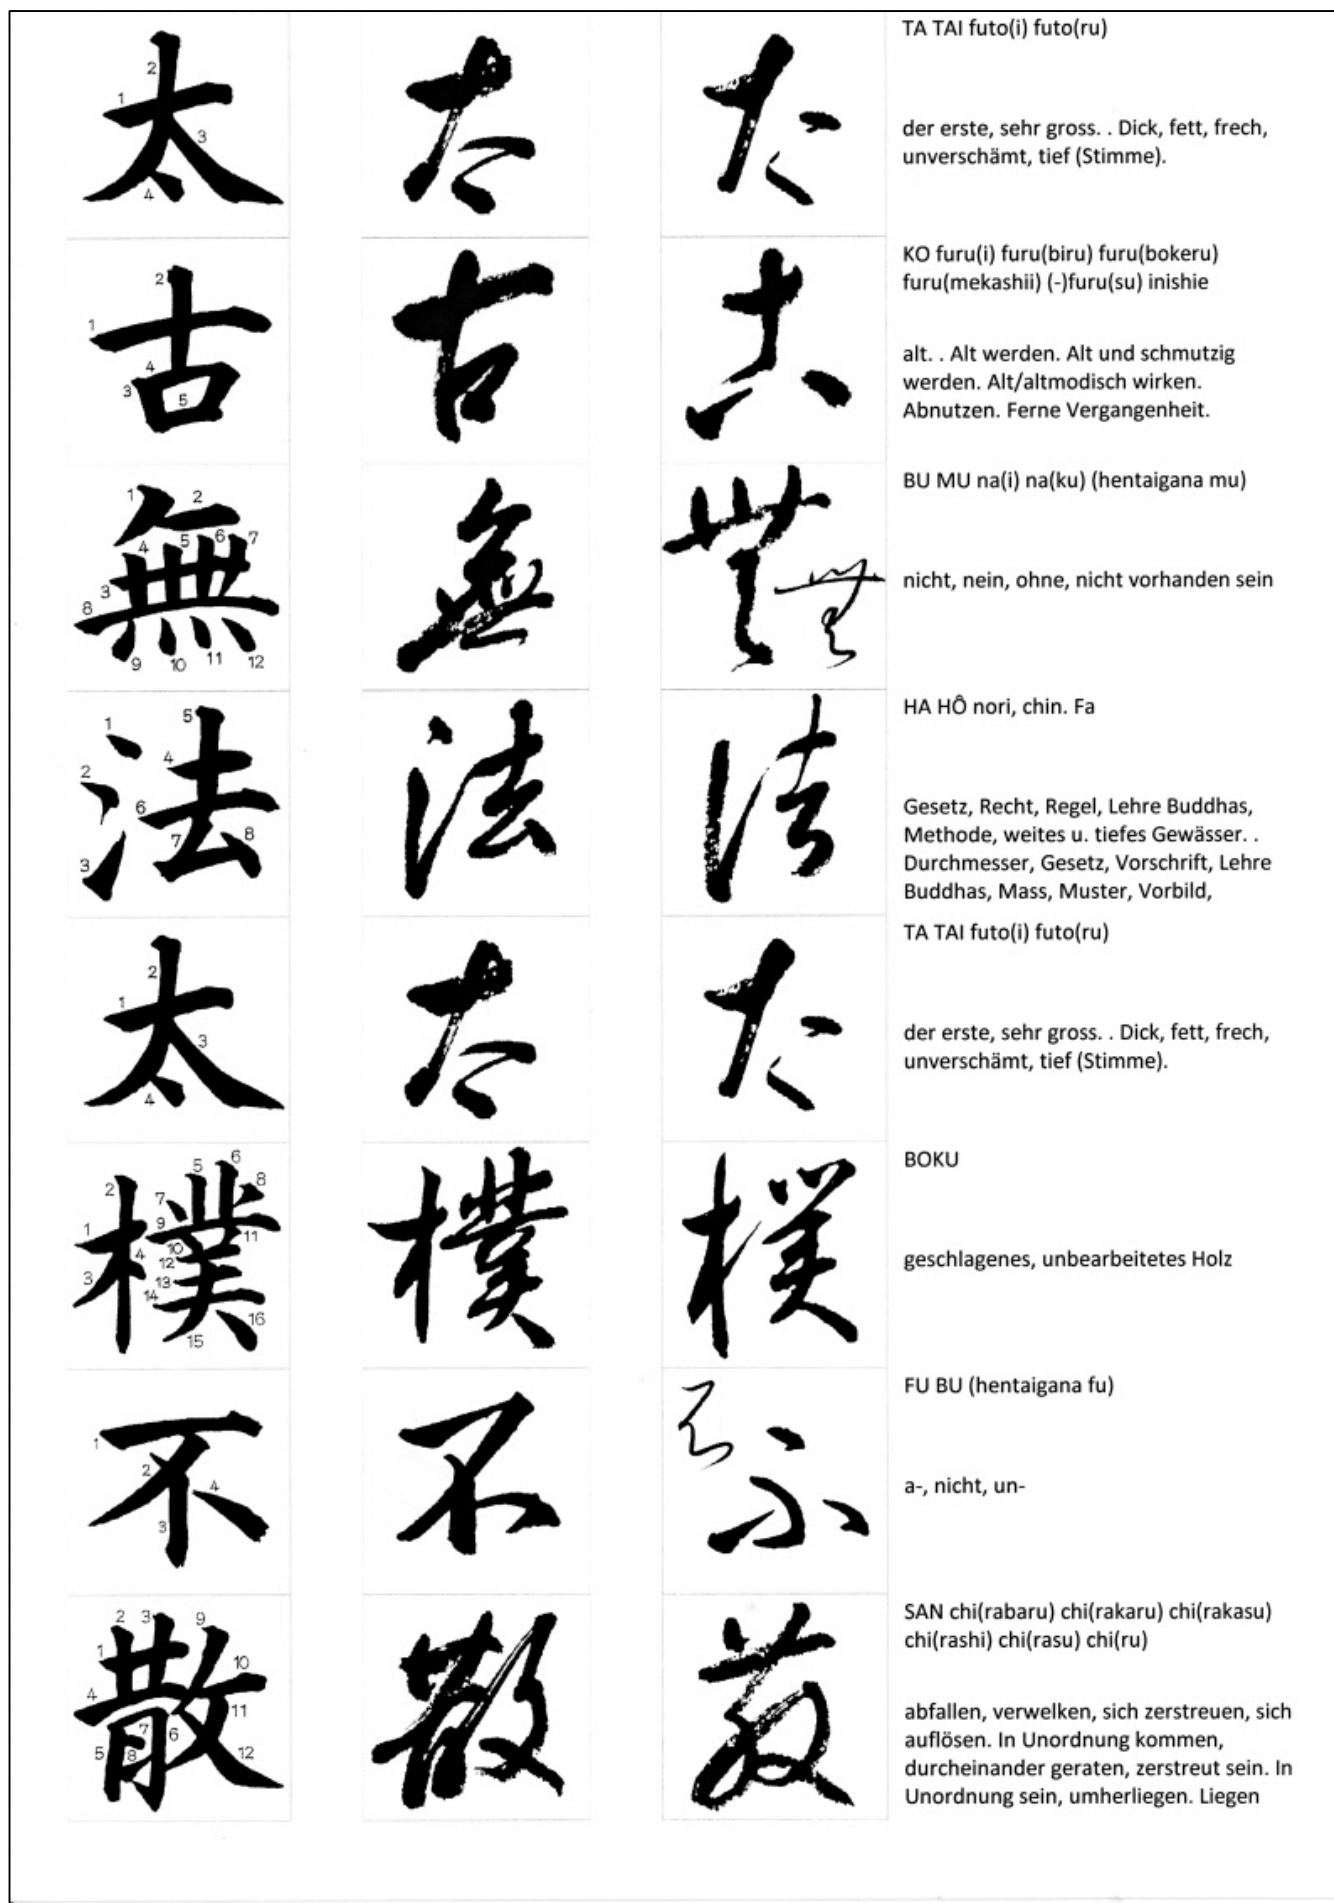 太 太 太
TA TAI futo(i) futo(ru)
der erste, sehr gross. . Dick, fett, frech,
unverschämt, tief (Stimme).
1 2 3 4
古 古 古
KO furu(i) furu(biru) furu(bokeru)
furu(mekashii) (-)furu(su) inishie
alt. . Alt werden. Alt und schmutzig
werden. Alt/altmodisch wirken.
Abnutzen. Ferne Vergangenheit.
1 2 3 4 5
無 無 無
BU MU na(i) na(ku) (hentaigana mu)
nicht, nein, ohne, nicht vorhanden sein
1 2 3 4 5 6 7 8 9 10 11 12
法 法 法
HA HÔ nori, chin. Fa
Gesetz, Recht, Regel, Lehre Buddhas,
Methode, weites u. tiefes Gewässer. .
Durchmesser, Gesetz, Vorschrift, Lehre
Buddhas, Mass, Muster, Vorbild,
1 2 3 4 5 6 7 8
太 太 太
TA TAI futo(i) futo(ru)
der erste, sehr gross. . Dick, fett, frech,
unverschämt, tief (Stimme).
1 2 3 4
樸 樸 樸
BOKU
geschlagenes, unbearbeitetes Holz
1 2 3 4 5 6 7 8 9 10 11 12 13 14 15 16
不 不 不
FU BU (hentaigana fu)
a-, nicht, un-
1 2 3 4
散 散 散
SAN chi(rabaru) chi(rakaru) chi(rakasu)
chi(rashi) chi(rasu) chi(ru)
abfallen, verwelken, sich zerstreuen, sich
auflösen. In Unordnung kommen,
durcheinander geraten, zerstreut sein. In
Unordnung sein, umherliegen. Liegen
1 2 3 4 5 6 7 8 9 10 11 12